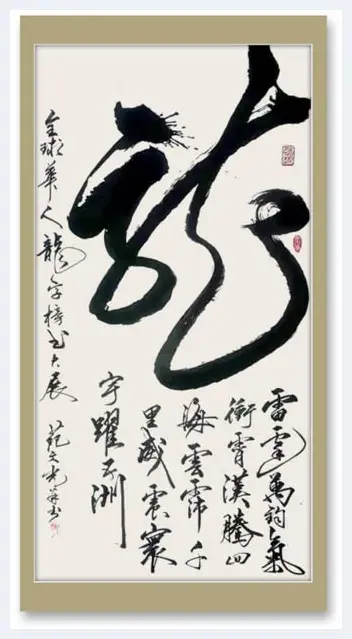 龍
雷霆萬鈞氣
衝霄漢騰四
海雲霈千
里威震寰
宇躍五洲
全球華人龍字榜书大展
范文光并书